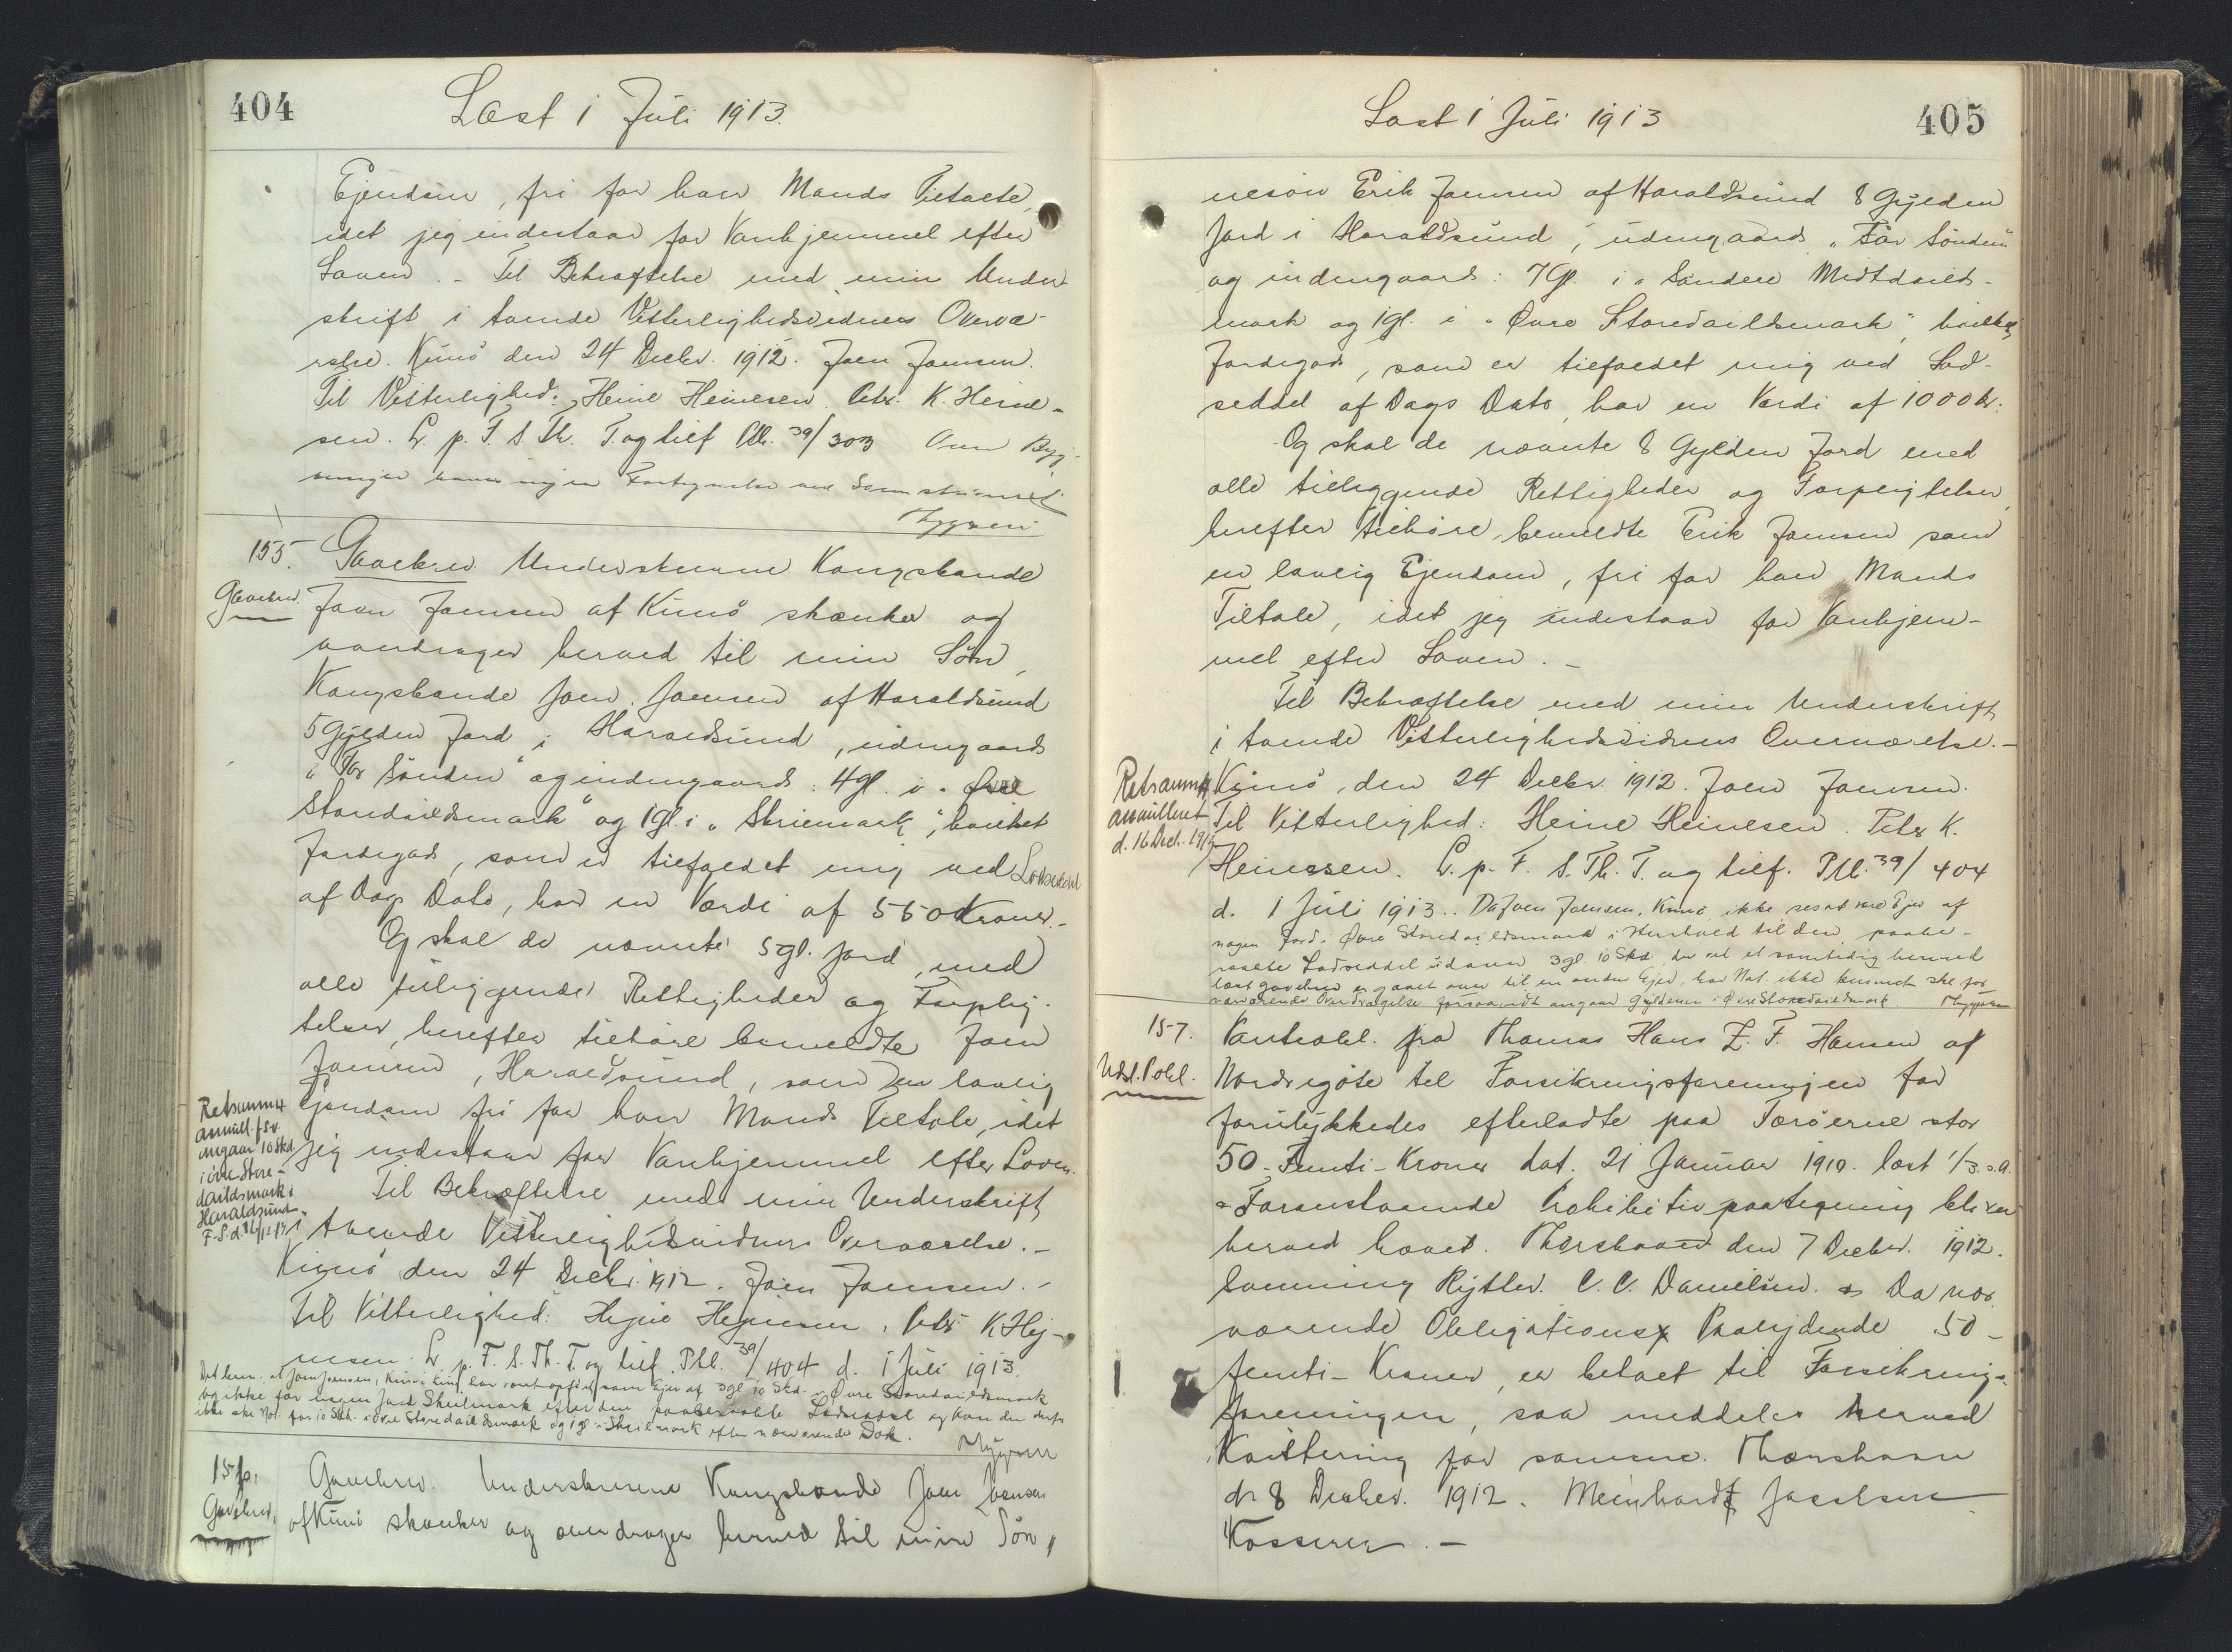 404
Læst 1 Juli 1913.
Ejendom, fri for hver Mands Tiltale,
idet jeg indestaar for Vanhjemmel efter
Loven. – Til Bekræftelse med min Under-
skrift i tvende Vitterlighedsvidners Overvæ-
relse. Kunø den 24 Decbr. 1912. Joen Joensen.
Til Vitterlighed: Heine Heinesen. Petr. K. Heine-
sen. L. p. F. S. Th. T. og tilf. Ptl. 39/303 Om Byg-
ninger haves ingen
155.
Gavebrev. Underskrevne Kongsbonde
Gavebrev.
Joen Joensen af Kunø skænker og
overdrager herved til min Søn,
Kongsbonde Joen Joensen af Haraldsund
5 Gylden Jord i Haraldsund, udengaards
"Før Sønden" og indengaards: 4 gl. i "Øvre
Storedaildsmark" og 1 gl. i "Skriemark", hvilket
Jordegods, som er tilfaldet mig ved Lodseddel
af Dags Dato, har en Værdi af 550 Kroner. –
Og skal de nævnte 5 gl. Jord, med
alle tilliggende Rettigheder og Forplig-
telser, herefter tilhøre bemeldte Joen
Joensen, Haraldsund, som en lovlig
Ejendom fri for hver Mands Tiltale, idet
jeg indestaar for Vanhjemmel efter Loven.
Retsanm.
annull. fsv.
angaar 10 Skd.
i øvre Store-
daildsmark i
Haraldsund
F.S. d. 16/12 19
Til Bekræftelse med min Underskrift
i tvende Vitterlighedsvidners Overværelse. –
Kunø den 24 Decbr. 1912. Joen Joensen. –
Til Vitterlighed: Hejne Hejnesen, Petr. K. Hej-
nesen. L. p. F. S. Th. T. og tilf. Ptl. 39/404 d. 1 Juli 1913.
Det bem. at Joen Joensen, Kunø kun har været opført som Ejer af 3 gl 10 Skd. i Øvre Storedaildsmark
og ikke for nogen Jord i Skrilmark efter den paaberaabte Lodseddel og kan der derfor
ikke ske Not. for 10 Skd. i Øvre Storedaildsmark og 1 gl i Skrilmark efter nærværende Dok.
156.
Gavebrev.
Gavebrev. Underskrevne Kongsbonde Joen Joensen
af Kunø skænker og overdrager herved til min Søn,
Læst 1 Juli 1913
405
nesøn Erik Joensen af Haraldsund 8 Gylden
Jord i Haraldsund, udengaards "Før Sønden"
og indengaards: 7 Gl. i "Søndere Midtdailds-
mark og 1 gl. i "Øvre Storedaildsmark", hvilket
Jordegods, som er tilfaldet mig ved Lod-
seddel af Dags Dato, har en Værdi af 1000 Kr.
Og skal de nævnte 8 Gylden Jord med
alle tilliggende Rettigheder og Forpligtelser,
herefter tilhøre, bemeldte Erik Joensen som
en lovlig Ejendom, fri for hver Mands
Tiltale, idet jeg indestaar for Vanhjem-
mel efter Loven. –
Til Bekræftelse med min Underskrift
i tvende Vitterlighedsvidners Overværelse. –
Retsanm.
annulleret
d. 16 Dech. 19
Kunø, den 24 Decbr. 1912. Joen Joensen.
Til Vitterlighed: Heine Heinesen. Peter K.
Heinesen. L. p. F. S. Th. T. og tilf. Ptl. 39/404
d. 1 Juli 1913. Da Joen Joensen, Kunø ikke ses at være Ejer af
nogen Jord i Øvre Storedaildsmark i Henhold til den paabe-
raabte Lodseddel udover 3 gl 10 Skd. der ved et samtidig hermed
læst gavebrev er gaaet over til en anden Ejer, har Not. ikke kunnet ske for
nærværende Overdragelse forsaavidt angaar Gyldenen i Øvre Storedaildsmark.
157.
Udsl. Obl.
Panteobl. fra Thomas Hans Z. F. Hansen af
Nordregøte til Forsikringsforeningen for
forulykkedes efterladte paa Færøerne stor
50 – Femti – Kroner dat. 21 Januar 1910. læst 1/3 s. a.
Foranstaaende Prohibitivpaategning bliver
herved hævet. Thorshavn den 7 Decbr. 1912.
C. C. Danielsen. Da nær-
værende Obligations Paalydende 50 –
femti – Kroner, er betalt til Forsikrings-
foreningen, saa meddeles herved
Kvittering for samme. Thorshavn
d. 8 Decbr. 1912. Meinhardt Jacobsen
Kasserer. –